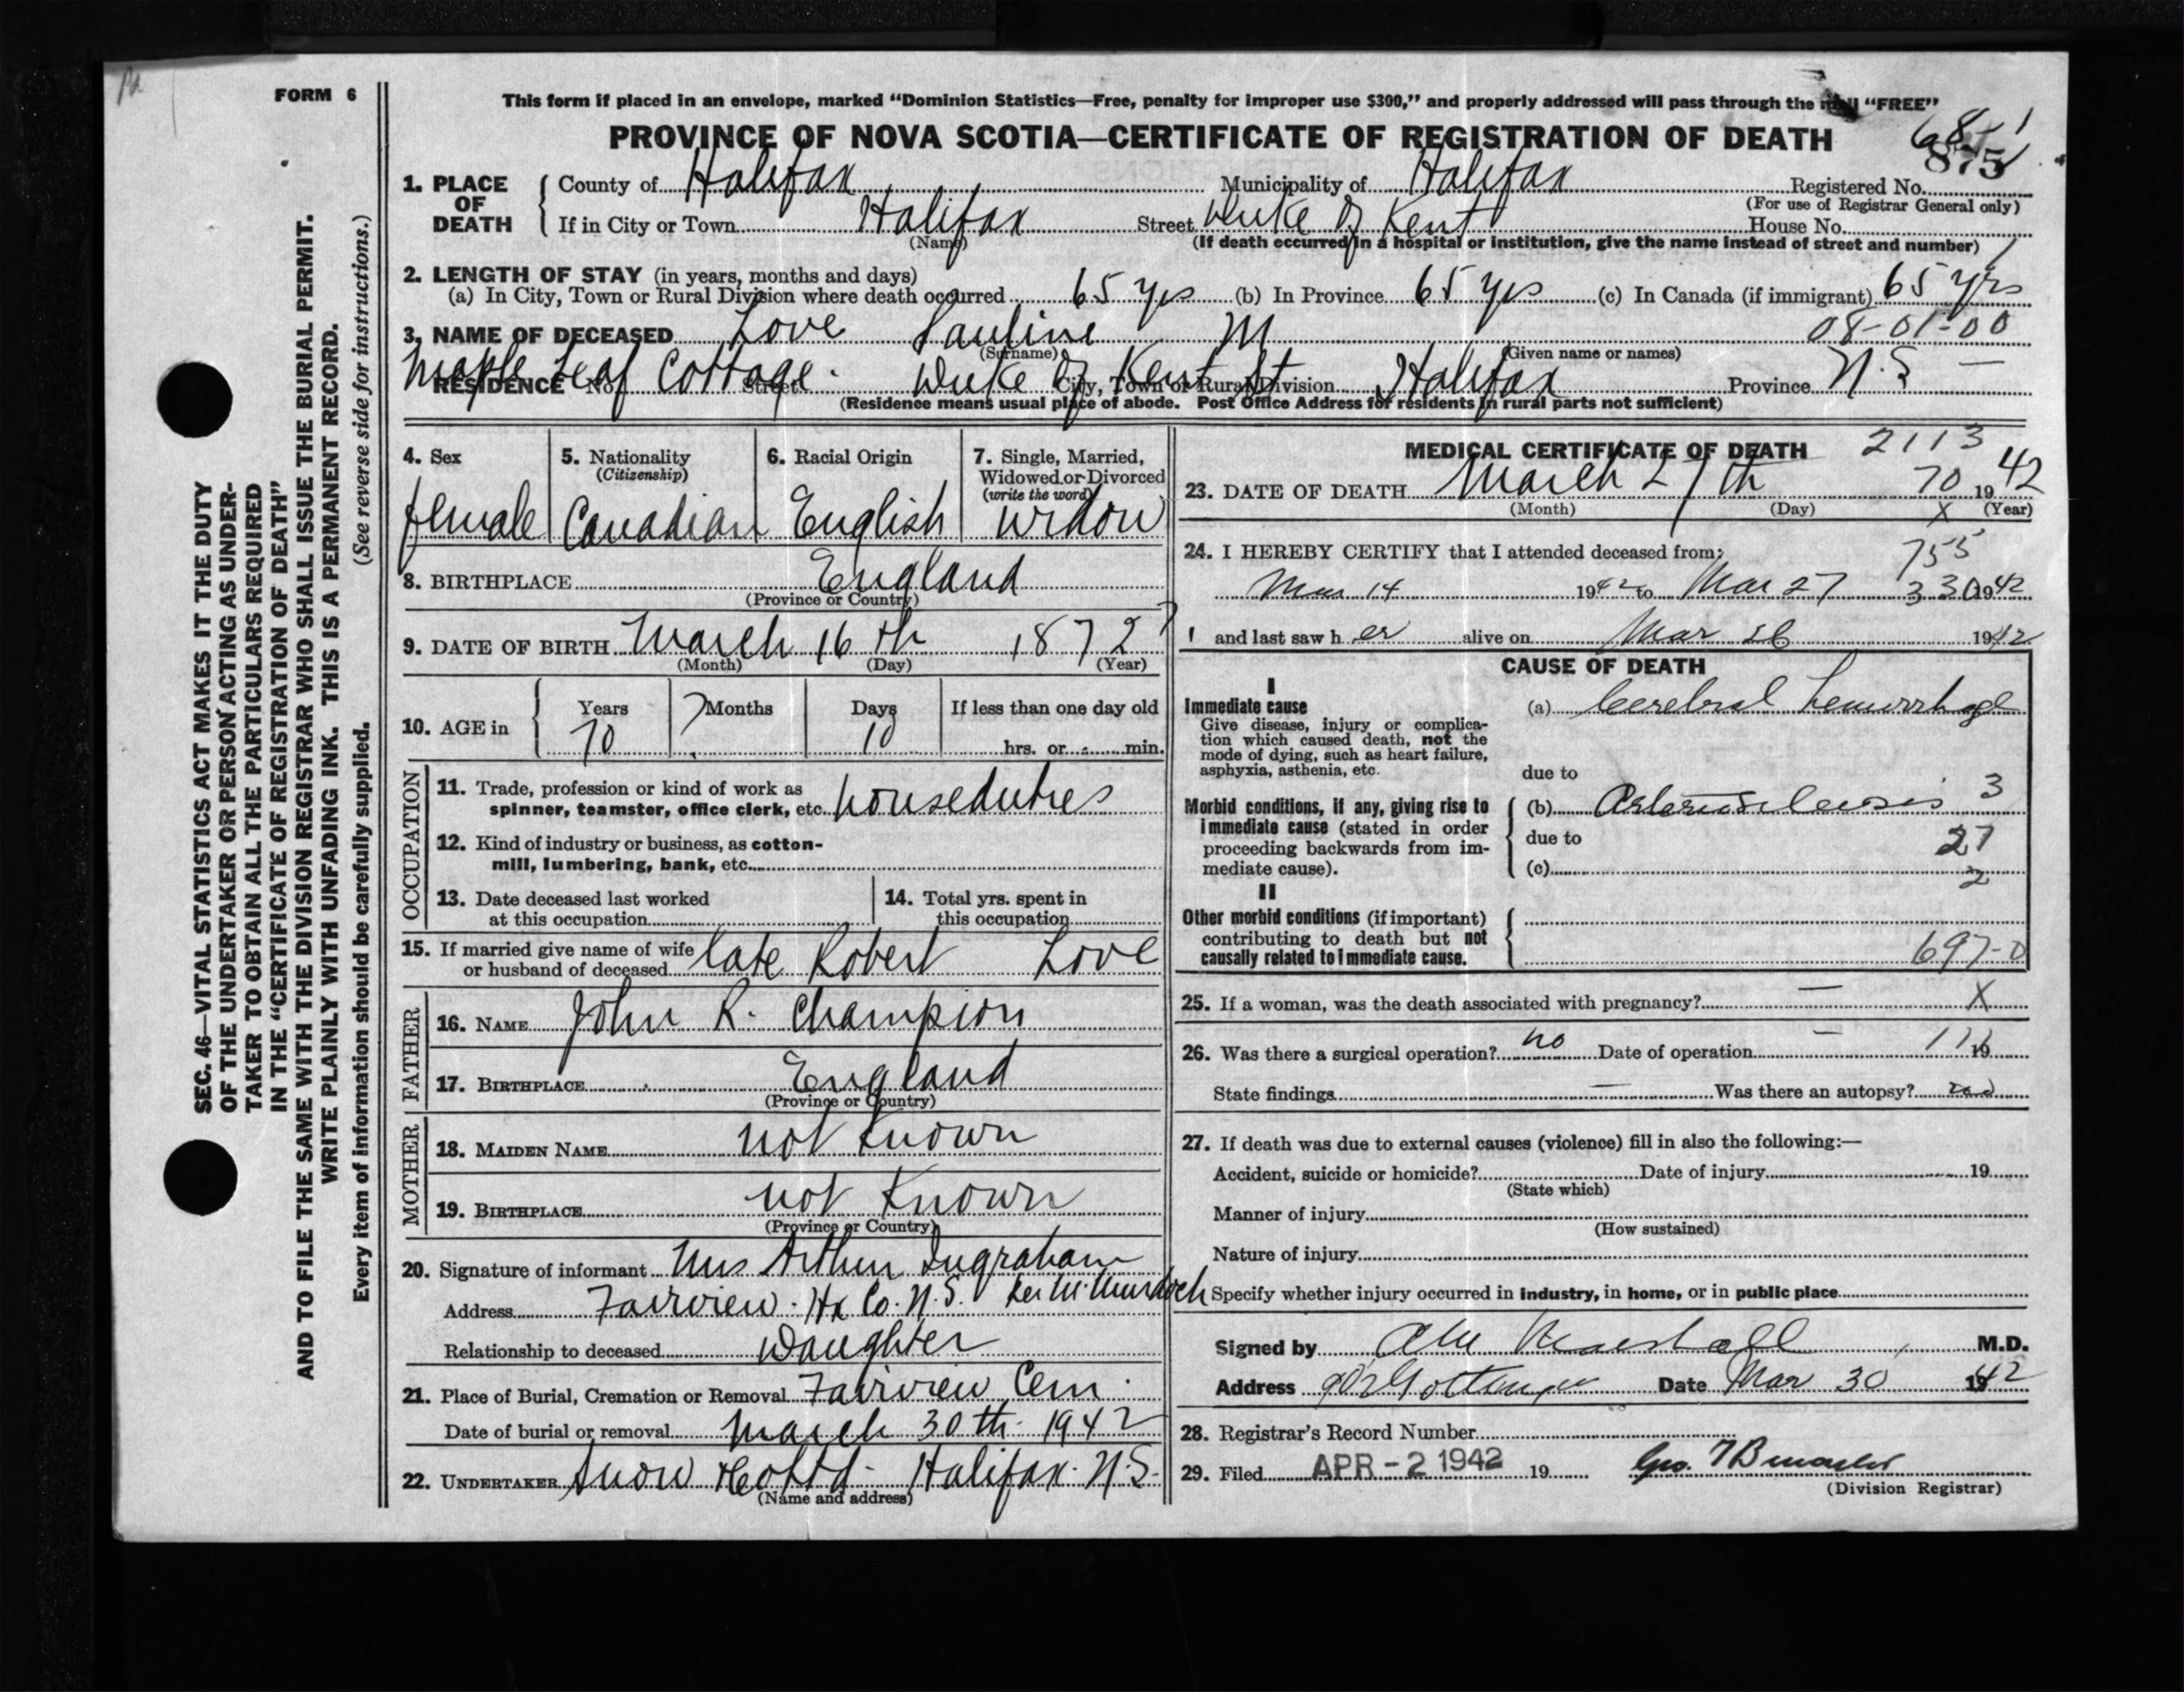 Pd
FORM 6
This form if placed in an envelope, marked “Dominion Statistics—Free, penalty for improper use $300,” and properly addressed will pass through the mail “FREE”
PROVINCE OF NOVA SCOTIA—CERTIFICATE OF REGISTRATION OF DEATH
68-1
875
1. PLACE OF DEATH
County of Halifax Municipality of Halifax Registered No.
(For use of Registrar General only)
If in City or Town Halifax Street Duke of Kent House No.
(Name) (If death occurred in a hospital or institution, give the name instead of street and number)
2. LENGTH OF STAY (in years, months and days)
(a) In City, Town or Rural Division where death occurred 65 yrs (b) In Province 65 yrs (c) In Canada (if immigrant) 65 yrs
3. NAME OF DECEASED Love Pauline M 08-01-00
(Surname) (Given name or names)
RESIDENCE No. Maple Leaf Cottage. Street Duke of Kent St City, Town or Rural Division Halifax Province N.S —
(Residence means usual place of abode. Post Office Address for residents in rural parts not sufficient)
4. Sex 5. Nationality 6. Racial Origin 7. Single, Married,
(Citizenship) Widowed or Divorced
(write the word)
female Canadian English widow
8. BIRTHPLACE England
(Province or Country)
9. DATE OF BIRTH March 16 th 1872 ?
(Month) (Day) (Year)
10. AGE in Years Months Days If less than one day old
70 10 hrs. or min.
OCCUPATION
11. Trade, profession or kind of work as
spinner, teamster, office clerk, etc. houseduties
12. Kind of industry or business, as cotton-
mill, lumbering, bank, etc.
13. Date deceased last worked
at this occupation
14. Total yrs. spent in
this occupation
15. If married give name of wife
or husband of deceased late Robert Love
FATHER
16. NAME John R. Champion
17. BIRTHPLACE England
(Province or Country)
MOTHER
18. MAIDEN NAME not known
19. BIRTHPLACE not known
(Province or Country)
20. Signature of informant Mrs Arthur Ingraham
Address Fairview. Hx Co. N.S. Per M. Murdoch
Relationship to deceased Daughter
21. Place of Burial, Cremation or Removal Fairview Cem.
Date of burial or removal March 30 th. 1942
22. UNDERTAKER Snow & Co Ltd - Halifax. N.S.
(Name and address)
MEDICAL CERTIFICATE OF DEATH 2113
23. DATE OF DEATH March 27th 70 1942
(Month) (Day) X (Year)
24. I HEREBY CERTIFY that I attended deceased from; 755
Mar 14 1942 to Mar 27 330 1942
and last saw her alive on Mar 26 1942
CAUSE OF DEATH
I
Immediate cause (a) Cerebral hemorrhage
Give disease, injury or complica-
tion which caused death, not the
mode of dying, such as heart failure,
asphyxia, asthenia, etc.
due to
Morbid conditions, if any, giving rise to (b) Arteriosclerosis 3
immediate cause (stated in order
proceeding backwards from im-
mediate cause).
due to 27
(c) 2
II
Other morbid conditions (if important)
contributing to death but not
causally related to immediate cause. 697-0
25. If a woman, was the death associated with pregnancy? — X
26. Was there a surgical operation? no Date of operation — 19
State findings — Was there an autopsy?
27. If death was due to external causes (violence) fill in also the following:—
Accident, suicide or homicide? Date of injury 19
(State which)
Manner of injury
(How sustained)
Nature of injury
Specify whether injury occurred in industry, in home, or in public place
Signed by Marshall M.D.
Address Gottingen Date Mar 30 1942
28. Registrar's Record Number
29. Filed APR - 2 1942 19 Geo.
(Division Registrar)
SEC. 46—VITAL STATISTICS ACT MAKES IT THE DUTY
OF THE UNDERTAKER OR PERSON ACTING AS UNDER-
TAKER TO OBTAIN ALL THE PARTICULARS REQUIRED
IN THE “CERTIFICATE OF REGISTRATION OF DEATH”
AND TO FILE THE SAME WITH THE DIVISION REGISTRAR WHO SHALL ISSUE THE BURIAL PERMIT.
WRITE PLAINLY WITH UNFADING INK. THIS IS A PERMANENT RECORD.
Every item of information should be carefully supplied. (See reverse side for instructions.)